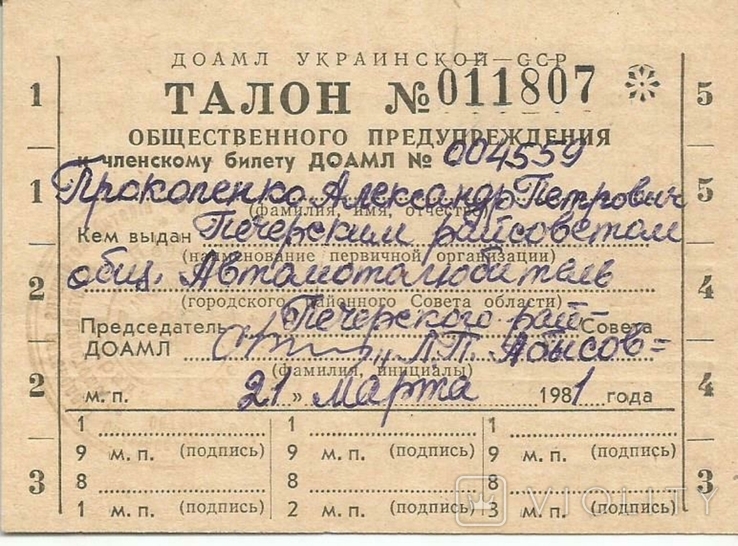 ДОАМЛ УКРАИНСКОЙ ССР
1 ТАЛОН № 011807 5
ОБЩЕСТВЕННОГО ПРЕДУПРЕЖДЕНИЯ
к членскому билету ДОАМЛ № 004559
1 Прокопенко Александр Петрович 5
(фамилия, имя, отчество)
Кем выдан Печерским райсоветом
(наименование первичной организации)
2 общ. Автомотолюбитель 4
(городского районного Совета области)
Председатель Печерского рай- Совета
ДОАМЛ Л.П. Абысов
(фамилия, инициалы)
2 м. п. 21 " марта 1981 года 4
1 1 1
9 м. п. (подпись) 9 м. п. (подпись) 9 м. п. (подпись)
3 8 8 8 3
1 м. п. (подпись) 2 м. п. (подпись) 3 м. п. (подпись)
VIOLITY